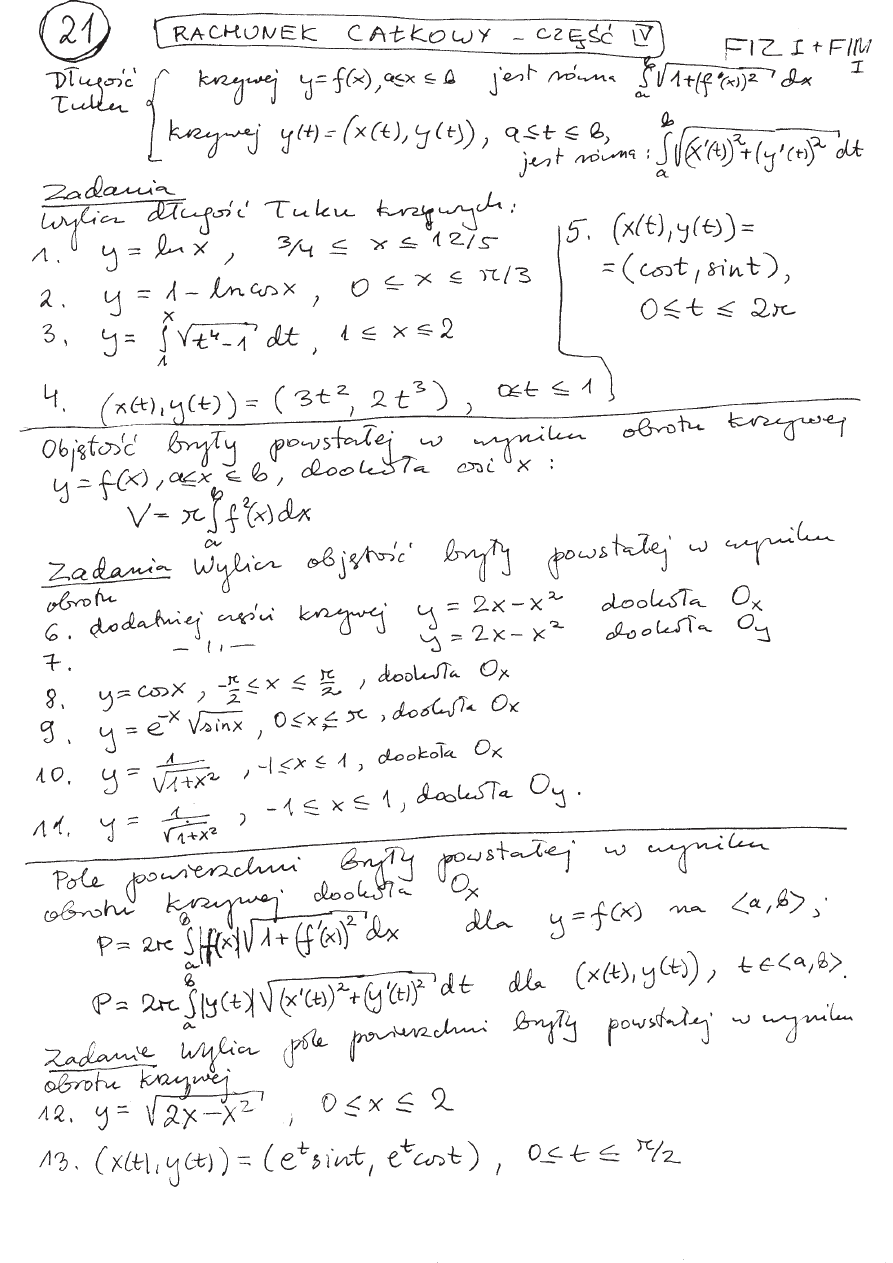 21 RACHUNEK CAŁKOWY – CZĘŚĆ IV FIZ I + FIM I
Długość łuku { krzywej y=f(x), a≤x≤b jest równa ∫_a^b √(1+(f'(x))²) dx
krzywej y(t)=(x(t), y(t)), a≤t≤b,
jest równa: ∫_a^b √((x'(t))²+(y'(t))²) dt
Zadania
Wylicz długość łuku krzywych:
1. y = ln x, 3/4 ≤ x ≤ 12/5
2. y = 1 – ln cos x, 0 ≤ x ≤ π/3
3. y = ∫_1^x √(t⁴–1) dt, 1 ≤ x ≤ 2
4. (x(t), y(t)) = (3t², 2t³), 0≤t ≤ 1
5. (x(t), y(t)) =
= (cost, sint),
0 ≤ t ≤ 2π
Objętość bryły powstałej w wyniku obrotu krzywej
y = f(x), a≤x ≤ b, dookoła osi x:
V = π ∫_a^b f²(x) dx
Zadania Wylicz objętość bryły powstałej w wyniku
obrotu
6. dodatniej części krzywej y = 2x – x² dookoła Ox
7. –||– y = 2x – x² dookoła Oy
8. y = cosx, -π/2 ≤ x ≤ π/2, dookoła Ox
9. y = e^-x √sinx, 0≤x≤π, dookoła Ox
10. y = 1/√(1+x²), -1≤x≤1, dookoła Ox
11. y = 1/√(1+x²), -1 ≤ x ≤ 1, dookoła Oy.
Pole powierzchni bryły powstałej w wyniku
obrotu krzywej dookoła Ox
P = 2π ∫_a^b |f(x)| √(1+(f'(x))²) dx dla y=f(x) na <a,b>;
P = 2π ∫_a^b |y(t)| √((x'(t))²+(y'(t))²) dt dla (x(t), y(t)), t∈<a,b>.
Zadanie Wylicz pole powierzchni bryły powstałej w wyniku
obrotu krzywej
12. y = √(2x–x²), 0 ≤ x ≤ 2
13. (x(t), y(t)) = (e^t sint, e^t cost), 0≤ t ≤ π/2